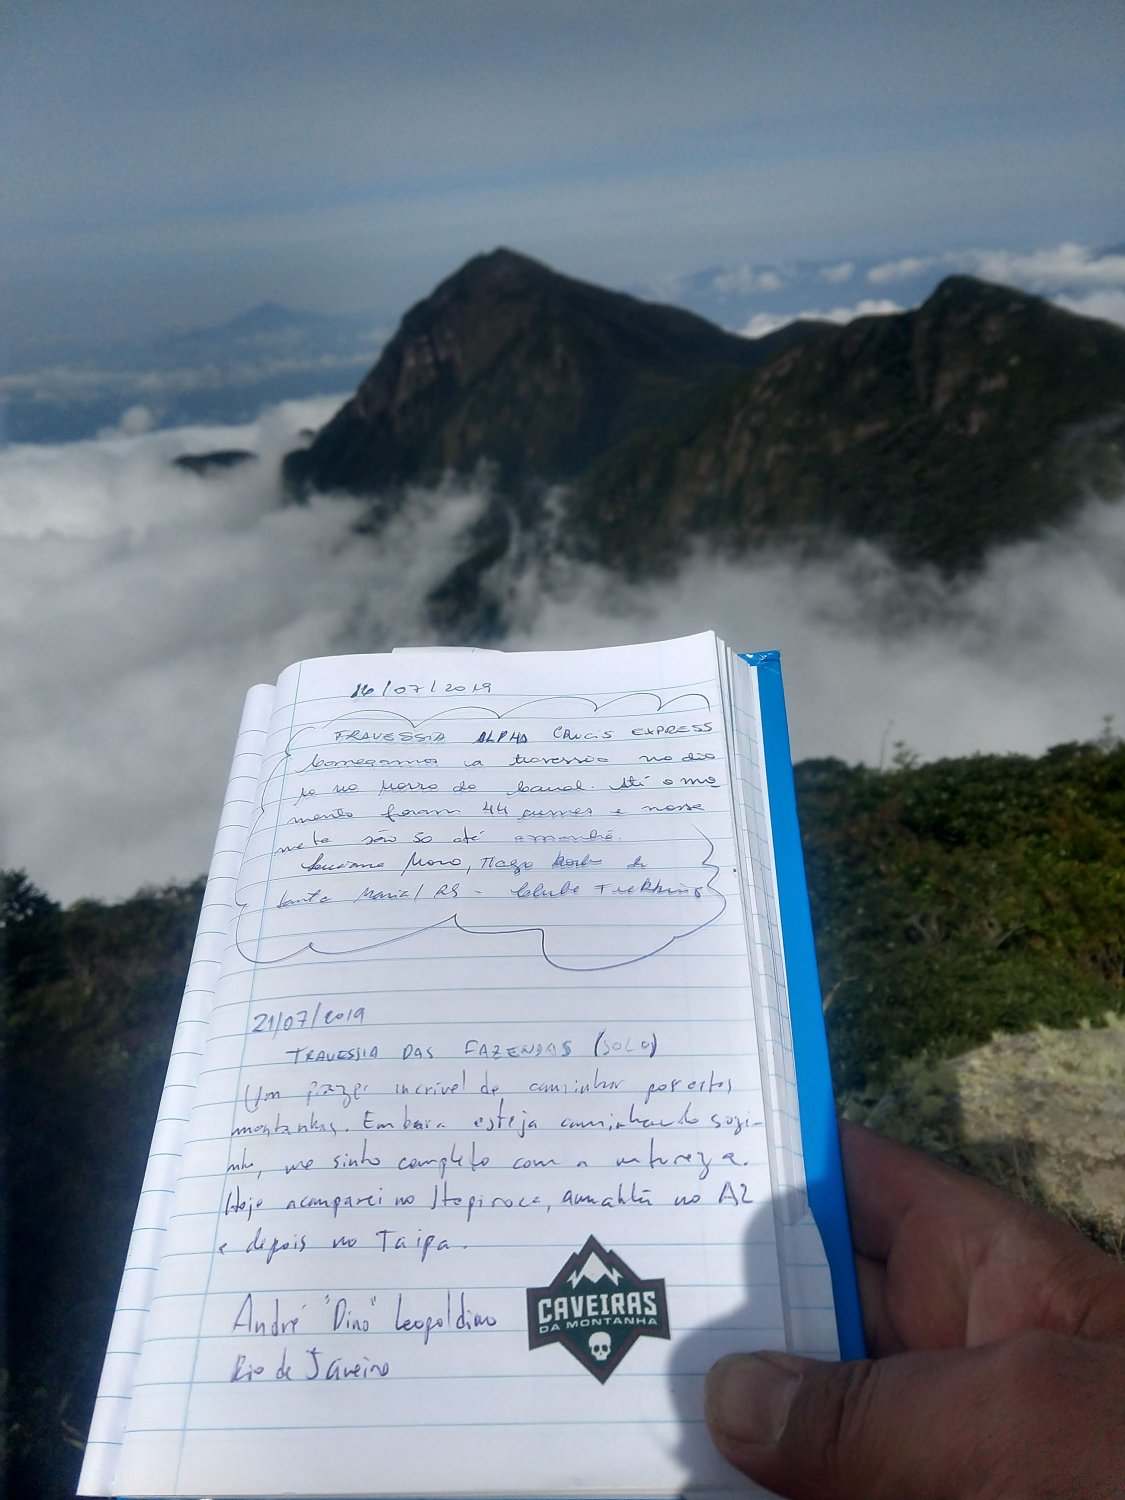 16/07/2019
TRAVESSIA ALPHA CRUCIS EXPRESS
Começamos a travessia no dia
10 no Morro do Canal. Até o mo
mento foram 44 cumes e nossa
meta são 50 até amanhã.
Luciana Moro, Tiago de
Santa Maria/RS - Clube Trekking
21/07/2019
TRAVESSIA DAS FAZENDAS (SOLO)
Um prazer incrível de caminhar por estas
montanhas. Embora esteja caminhando sozi-
nho, me sinto completo com a natureza.
Hoje acampei no Itapiroca, amanhã no A2
e depois no Taipa.
André "Dino" Leopoldino
Rio de Janeiro
CAVEIRAS
DA MONTANHA